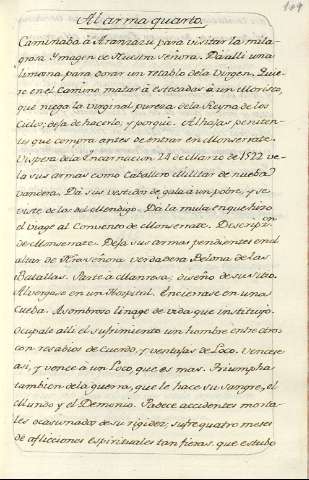 104
Al arma quarto.
Caminaba à Aranzazu para visitar la mila-
grosa Ymagen de Nuestra Señora. Dà alli una
limosna para dorar un retablo de la Virgen. Quie-
re en el Camino matar à estocadas à un Morisco,
que niega la virginal pureza de la Reyna de los
Cielos; deja de hacerlo, y porquè. Alhajas peniten-
tes que compra antes de entrar en Monserrate.
Vispera de la Encarnacion 24 de Marzo de 1522 ve-
la sus armas como Caballero Militar de nueba
vandera. Dà sus vestidos de gala à un pobre, y se
viste de los del Mendigo. Dà la mula en que hizo
el viage al Convento de Monserrate. Descripcion
de Monserrate. Deja sus armas pendientes en el
altar de Nra Señora verdadera Belona de las
Batallas. Parte à Manresa; diseño de su sitio.
Alvergase en un Hospital. Encierrase en una
Cueba. Asombroso linage de vida que instituyò.
Ocupale alli el sufrimiento un hombre entre otros
con resabios de Cuerdo, y ventajas de Loco. Vencese
asi, y vence à un Loco, que es mas. Triumpha
tambien de la guerra, que le hace su sangre, el
Mundo y el Demonio. Padece accidentes morta-
les ocasionados de su rigidez, sufre quatro meses
de aflicciones espirituales tan fieras, que estubo